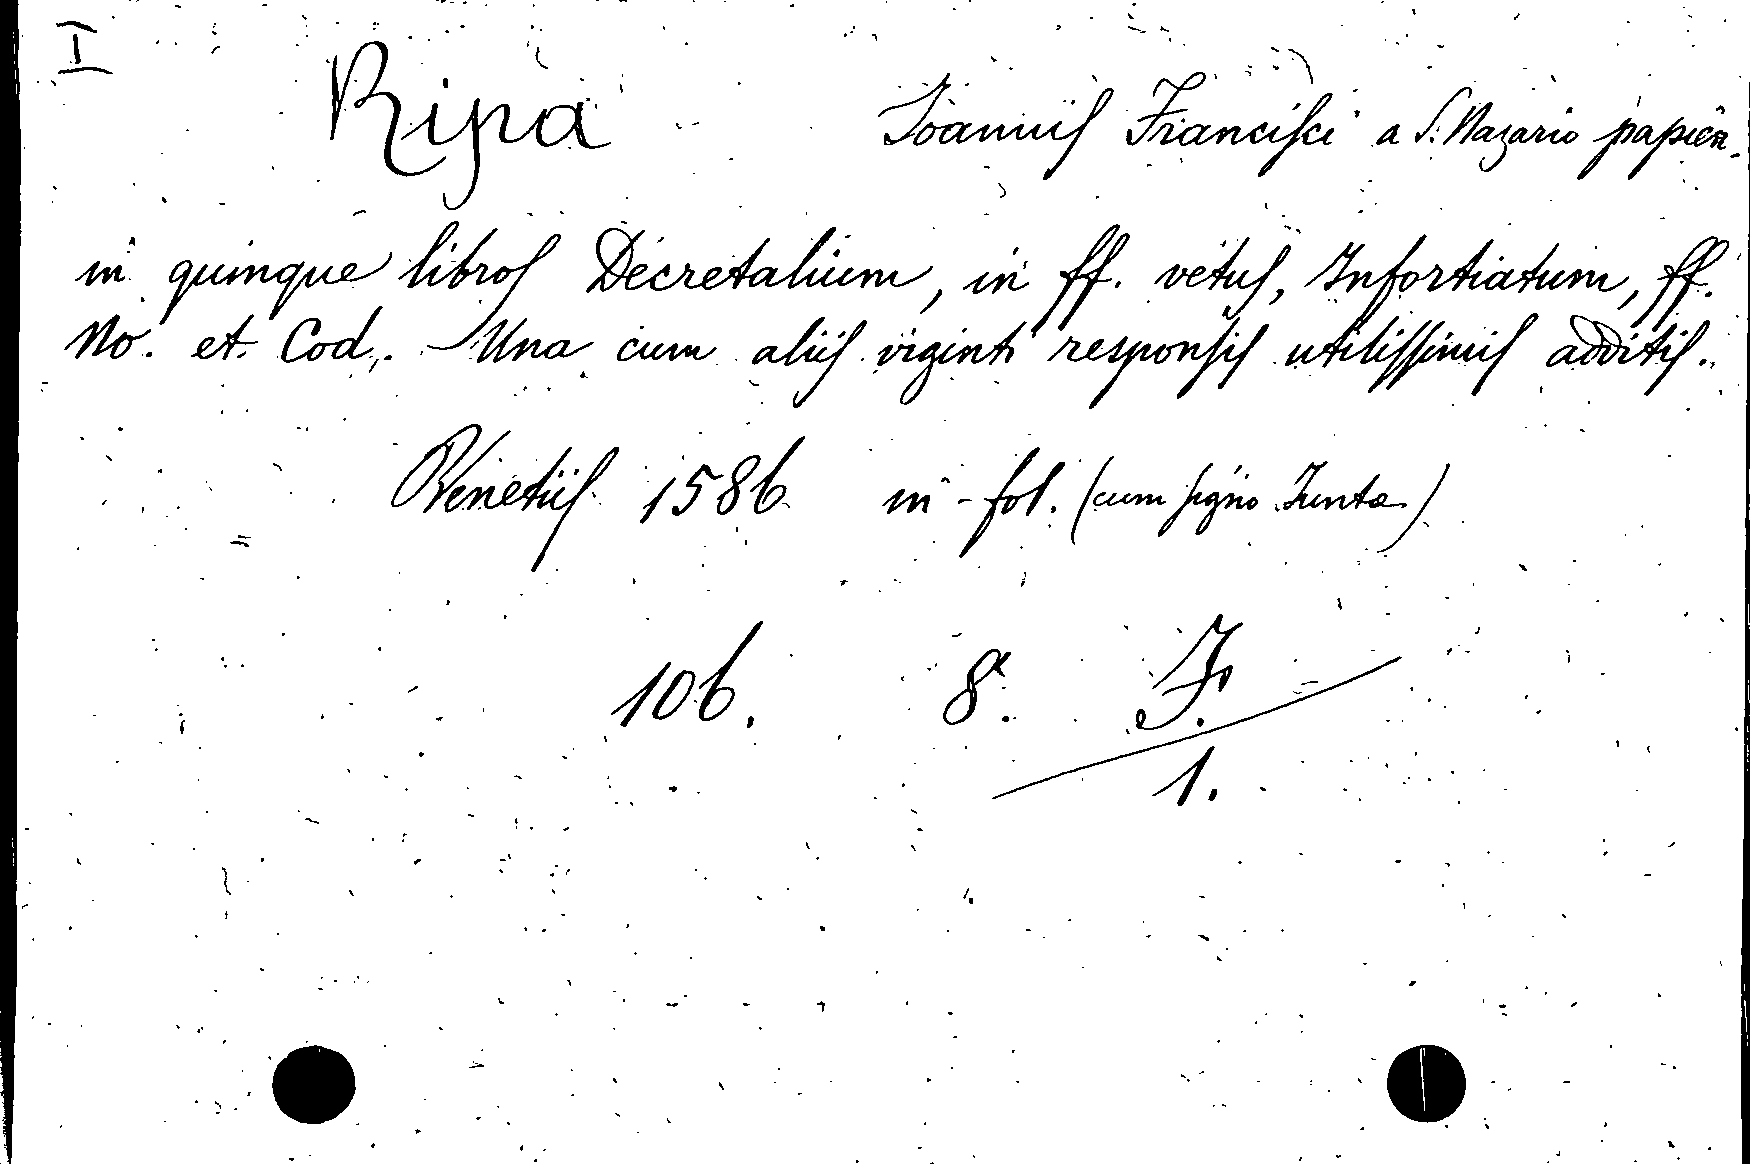 I
Ripa Joannis Francisci a S. Nazario papien.
in quinque libros Decretalium, in ff. vetus, Infortiatum, ff.
No. et. Cod. Una cum aliis viginti responsis utilissimis additis.
Venetiis 1586 in-fol. (cum signo Juntæ)
106. 8. F.
1.